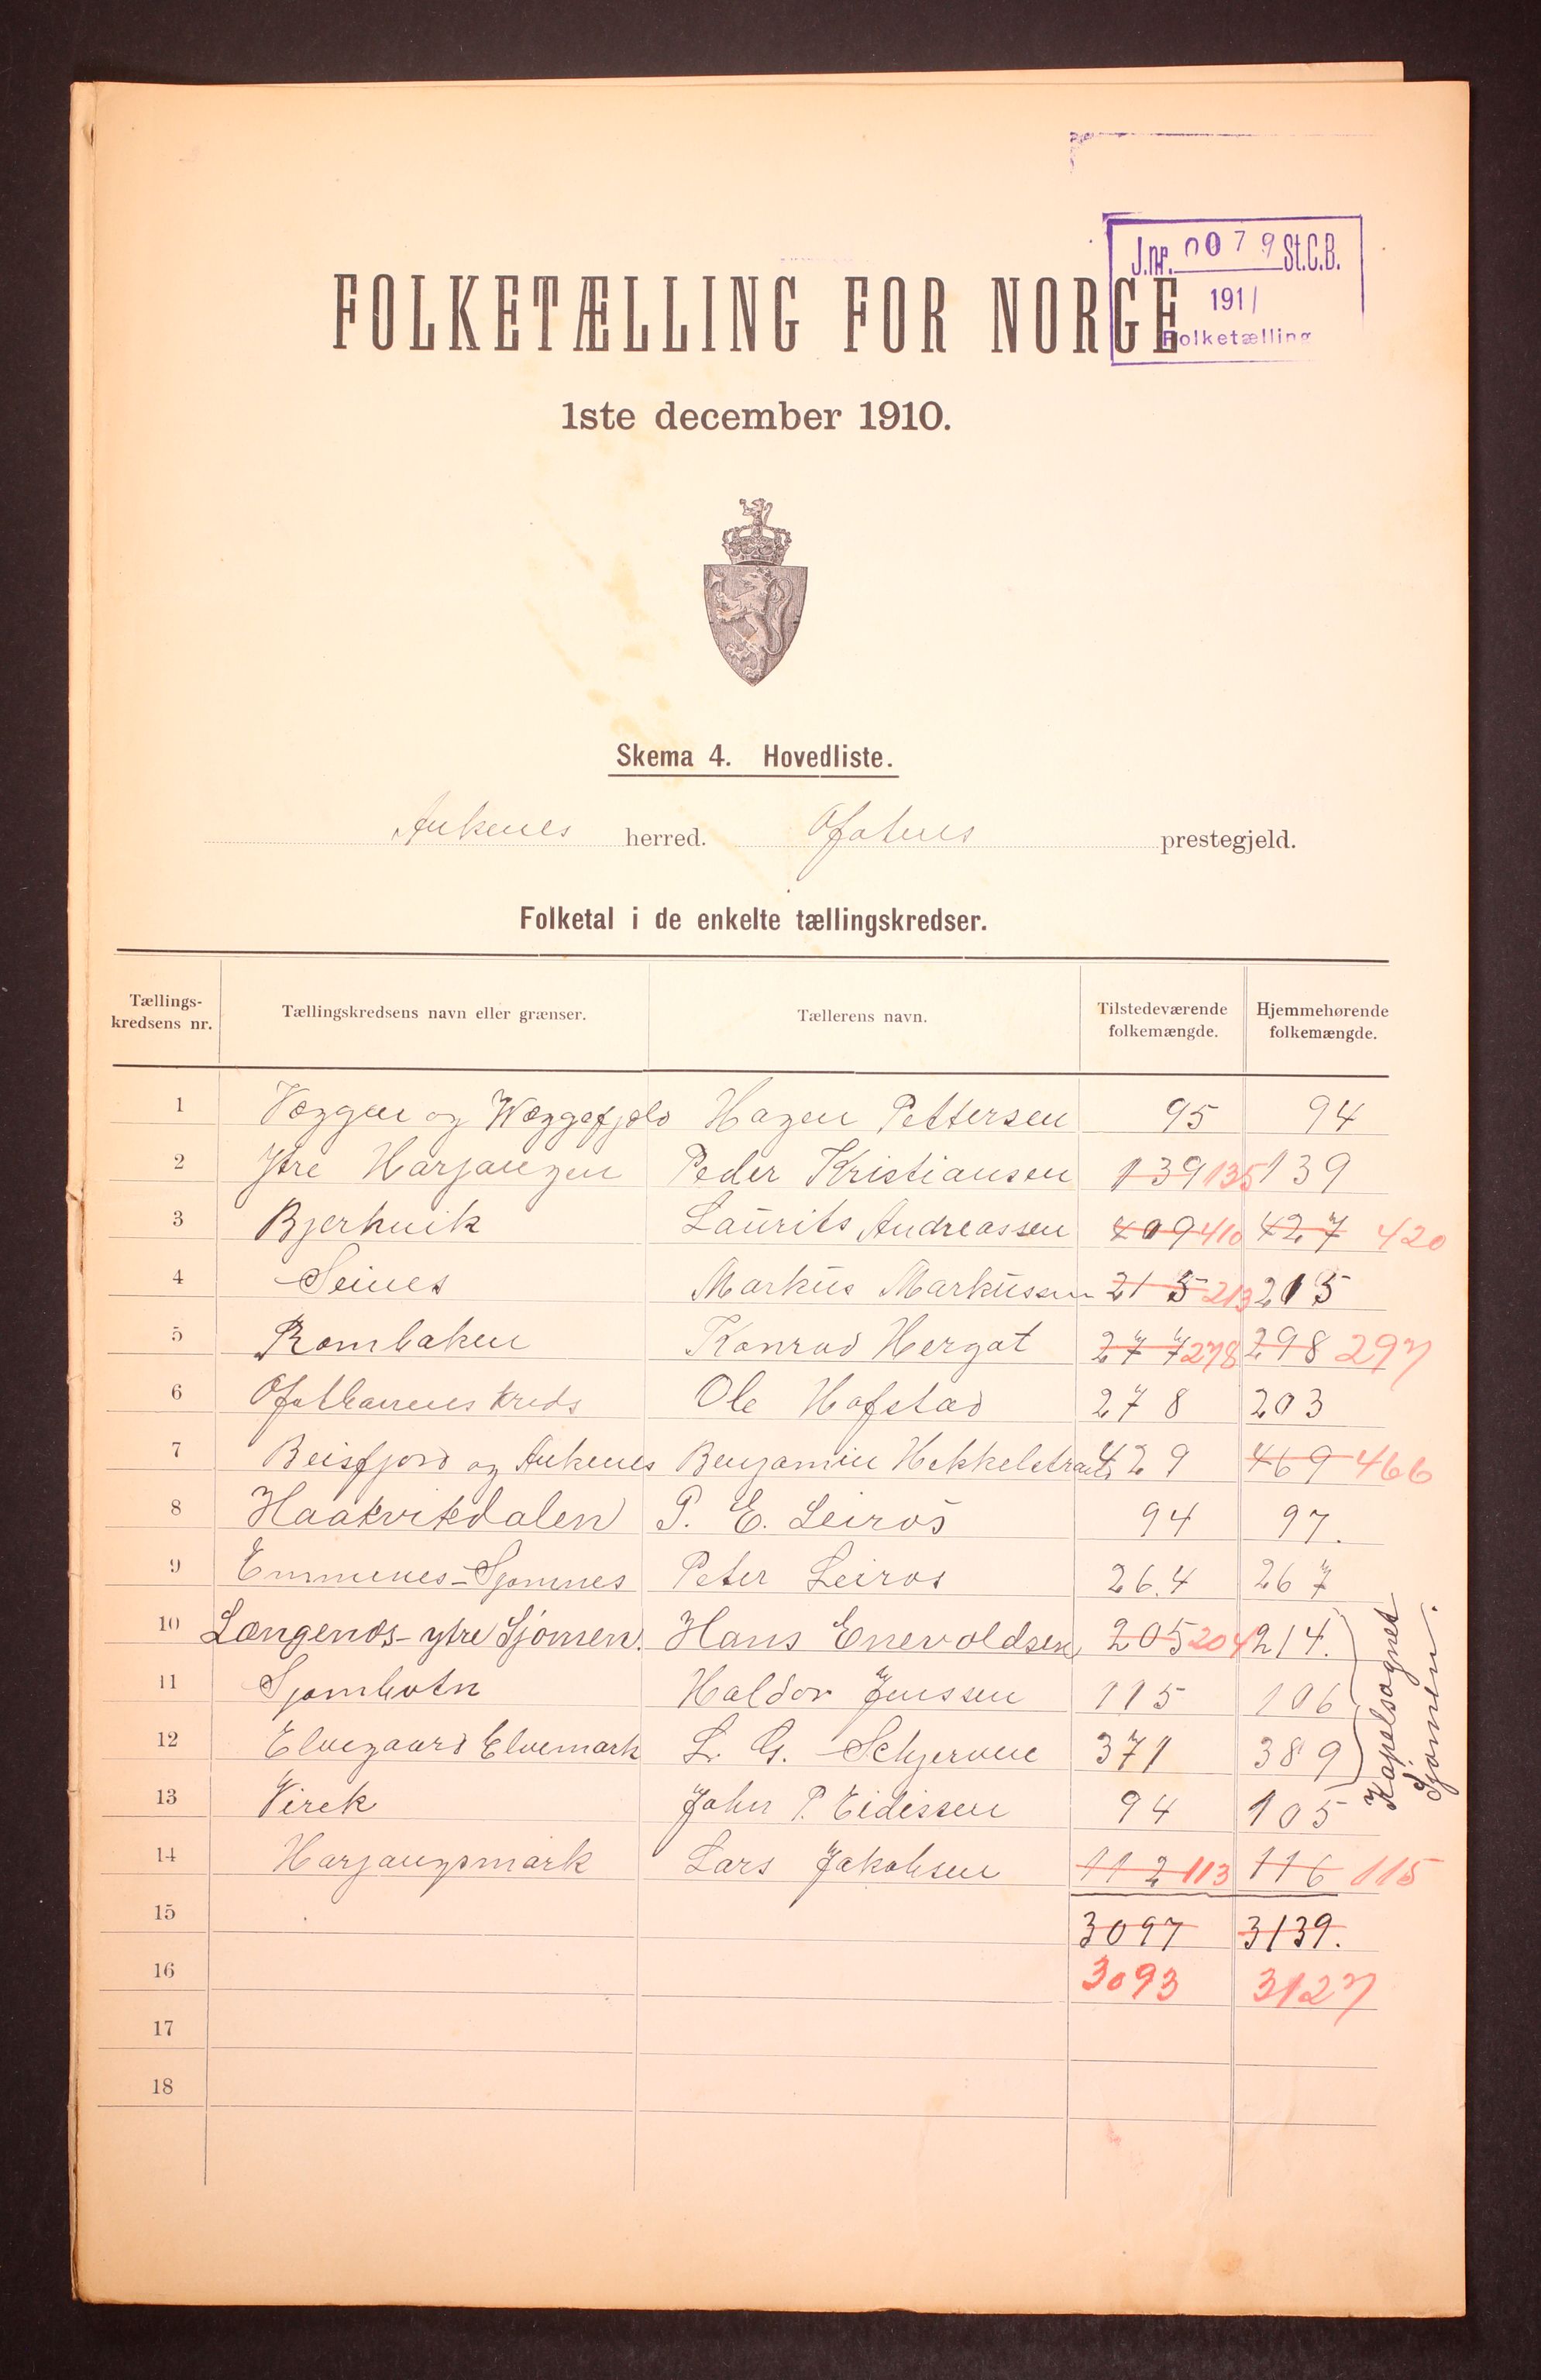 J.nr. 0079 St.C.B.
1911
Folketælling
FOLKETÆLLING FOR NORGE
1ste december 1910.
Skema 4. Hovedliste.
Ankenes herred. Ofotens prestegjeld.
Folketal i de enkelte tællingskredser.
Tællings-kredsens nr. Tællingskredsens navn eller grænser. Tællerens navn. Tilstedeværende folkemængde. Hjemmehørende folkemængde.
1 Væggen og Wæggefjeld Hagen Pettersen 95 94
2 Ytre Harjangen Peder Kristiansen 139 135 139
3 Bjerkvik Laurits Andreassen 409 410 427 420
4 Seines Markus Markussen 215 213 215
5 Rombaken Konrad Hergot 277 278 298 297
6 Ofotbanens Kreds Ole Hofstad 278 203
7 Beisfjord og Ankenes Benjamin Hekkelstrand 429 469 466
8 Haakvikdalen P. E. Leiros 94 97.
9 Emmenes-Sjomnes Peter Leiros 26.4 267
10 Længenes-ytre Sjomen. Hans Enevoldsen 205 204 214.
11 Sjombotn Haldor Jenssen 115 106
12 Elvegaard Elvemark L. G. Schjerven 371 389
13 Virek John P. Eidissen 94 105
14 Harjangsmark Lars Jakobsen 112 113 116 115
15 3097 3139.
16 3093 3127
17
18
Kapelsognet
Sjomen.